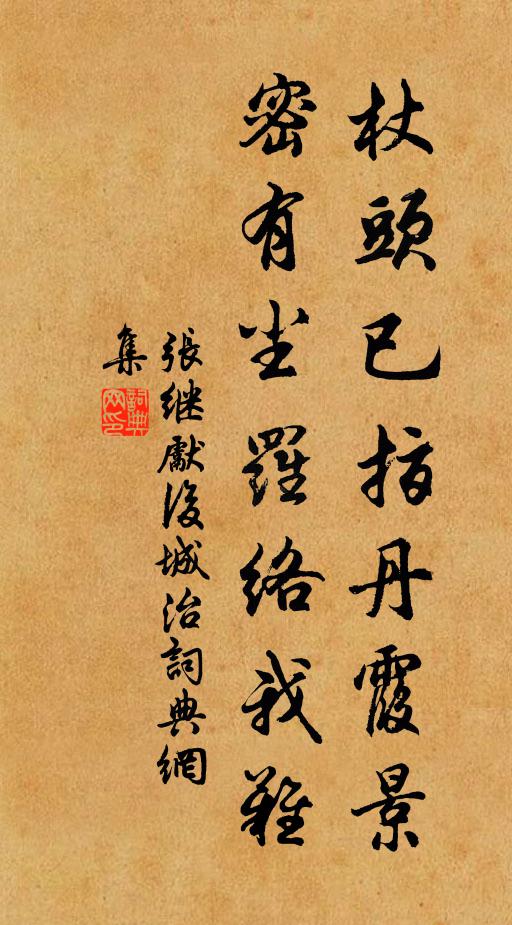 杖頭已指丹霞景
密有尘羅絡我難
張继獻後城治詞典網
集
詞典
网印